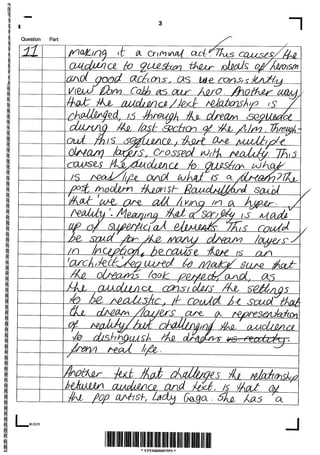 3
Question Part
11 making it a criminal act. This causes the
audience to question their ideals of heroism
and good actions, as we consistently
view Dom Cobb as our hero. Another way
that the audience/text relationship is
challenged, is through the dream sequence
during the last section of the film. Through-
out this sequence, there are multiple
dream layers, crossed with reality. This
causes the audience to question what
is real life and what is a dream? The
post modern theorist Baudrillard said
that 'we are all living in a hyper-
reality'. Meaning that a society is made
up of superficial elements. This could
be said for the many dream layers
in Inception, because there is an
'architect' required to make sure that
the dreams look perfect, and, as
the audience considers the settings
to be realistic, it could be said that
the dream layers are a representation
of reality, but challenging the audience
to distinguish the dreams vs reality.
from real life.
Another text that challenges the relationship
between audience and text, is that of
the pop artist, Lady Gaga. She has a